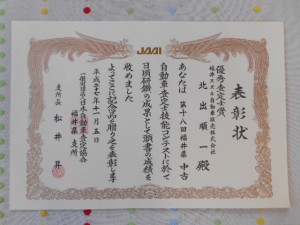 JAAI
表彰状
優秀査定士賞
福井スズキ自動車販売株式会社
北出順一殿
あなたは第十八回福井県中古
自動車査定士技能コンテストに於て
日頃研鑽の成果として頭書の成績を
収めました
よってここに記念品を贈り之を表彰します
平成二十七年十一月五日
一般財団法人日本自動車査定協会
福井県支所
支所長 松井 昇